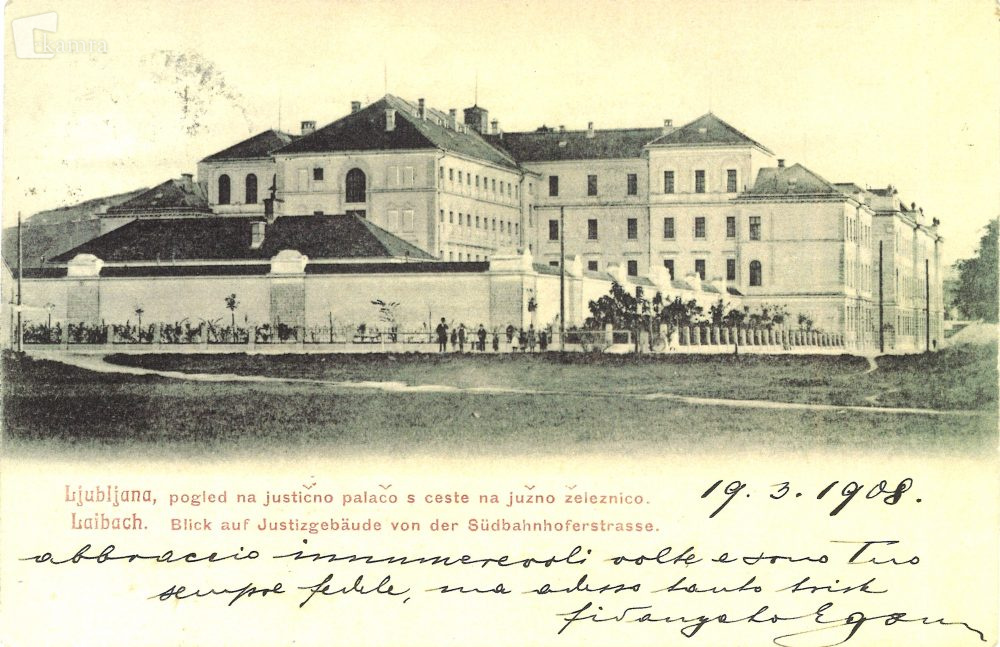 kamra
Ljubljana, pogled na justično palačo s ceste na južno železnico.
Laibach. Blick auf Justizgebäude von der Südbahnhoferstrasse.
19. 3. 1908.
abbraccio innumerevoli volte e sono Tuo
sempre fedele, ma adesso tanto trist
fidanzato Egon